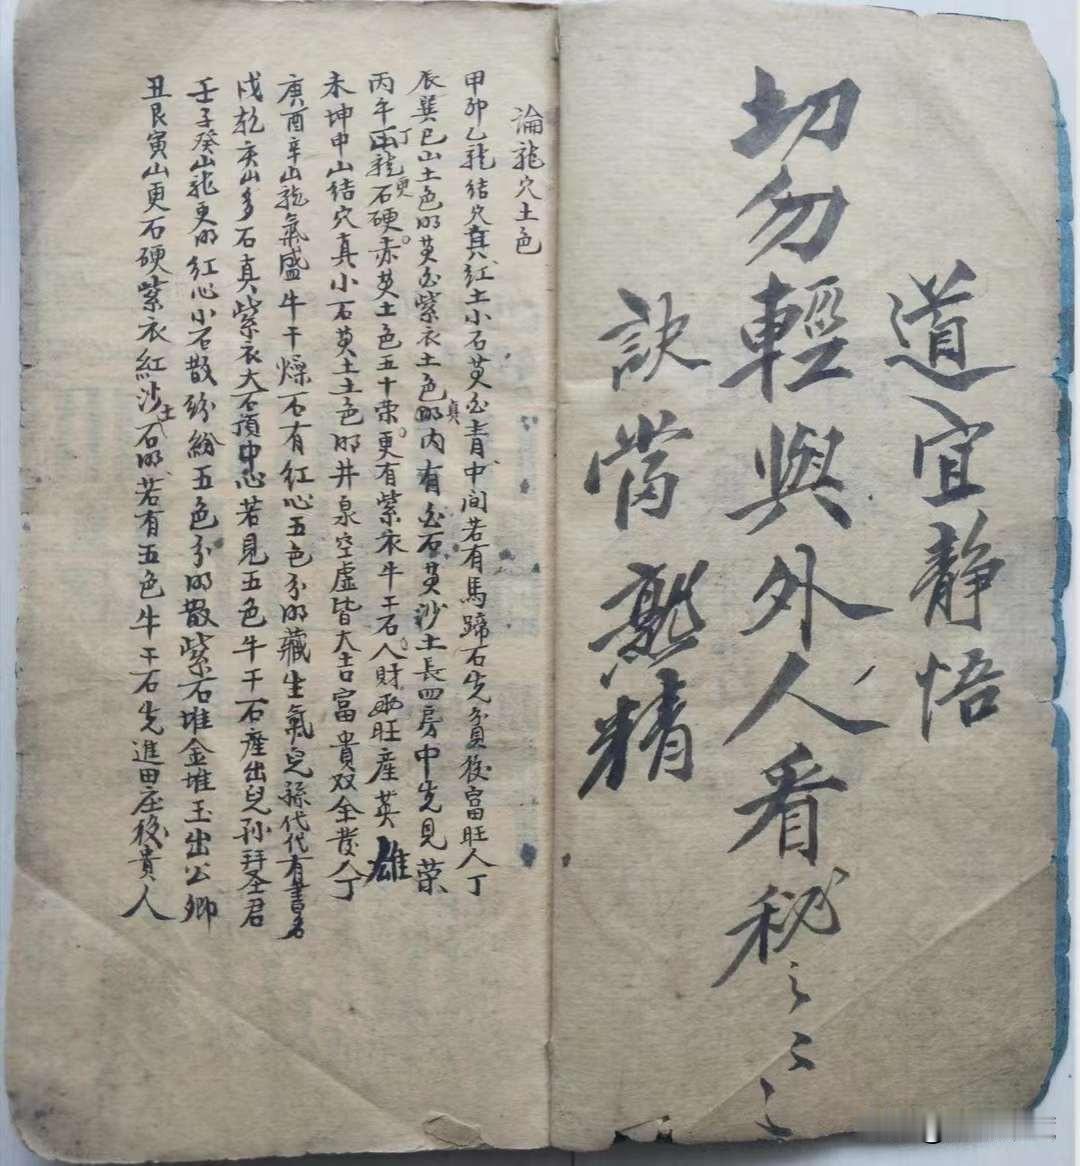 道宜静悟
切勿輕與外人看秘之ミミ
訣當熟精
論龍穴土色
甲卯乙龍結穴真紅土小石黄白青中間若有馬蹄石先貧後富旺人丁
辰巽巳山土色明黄白紫衣土色明真内有白石黄沙土長四房中先見荣
丙午丁龍石更硬赤黄土色五十荣更有紫衣牛干石人財両旺産英雄
未坤申山結穴真小石黄土土色明井泉空虛皆大吉富貴双全發人丁
庚酉辛山龍氣盛牛干燥石有红心五色分明藏生氣兒孫代代有書名
戌乾亥山多石真紫衣大石頂中心若見五色牛干石産出兒孙拜圣君
壬子癸山龍更明红心小石散紛紛五色分明散紫石堆金堆玉出公卿
丑艮寅山更石硬紫衣紅沙土石明若有五色牛干石先進田庄後貴人